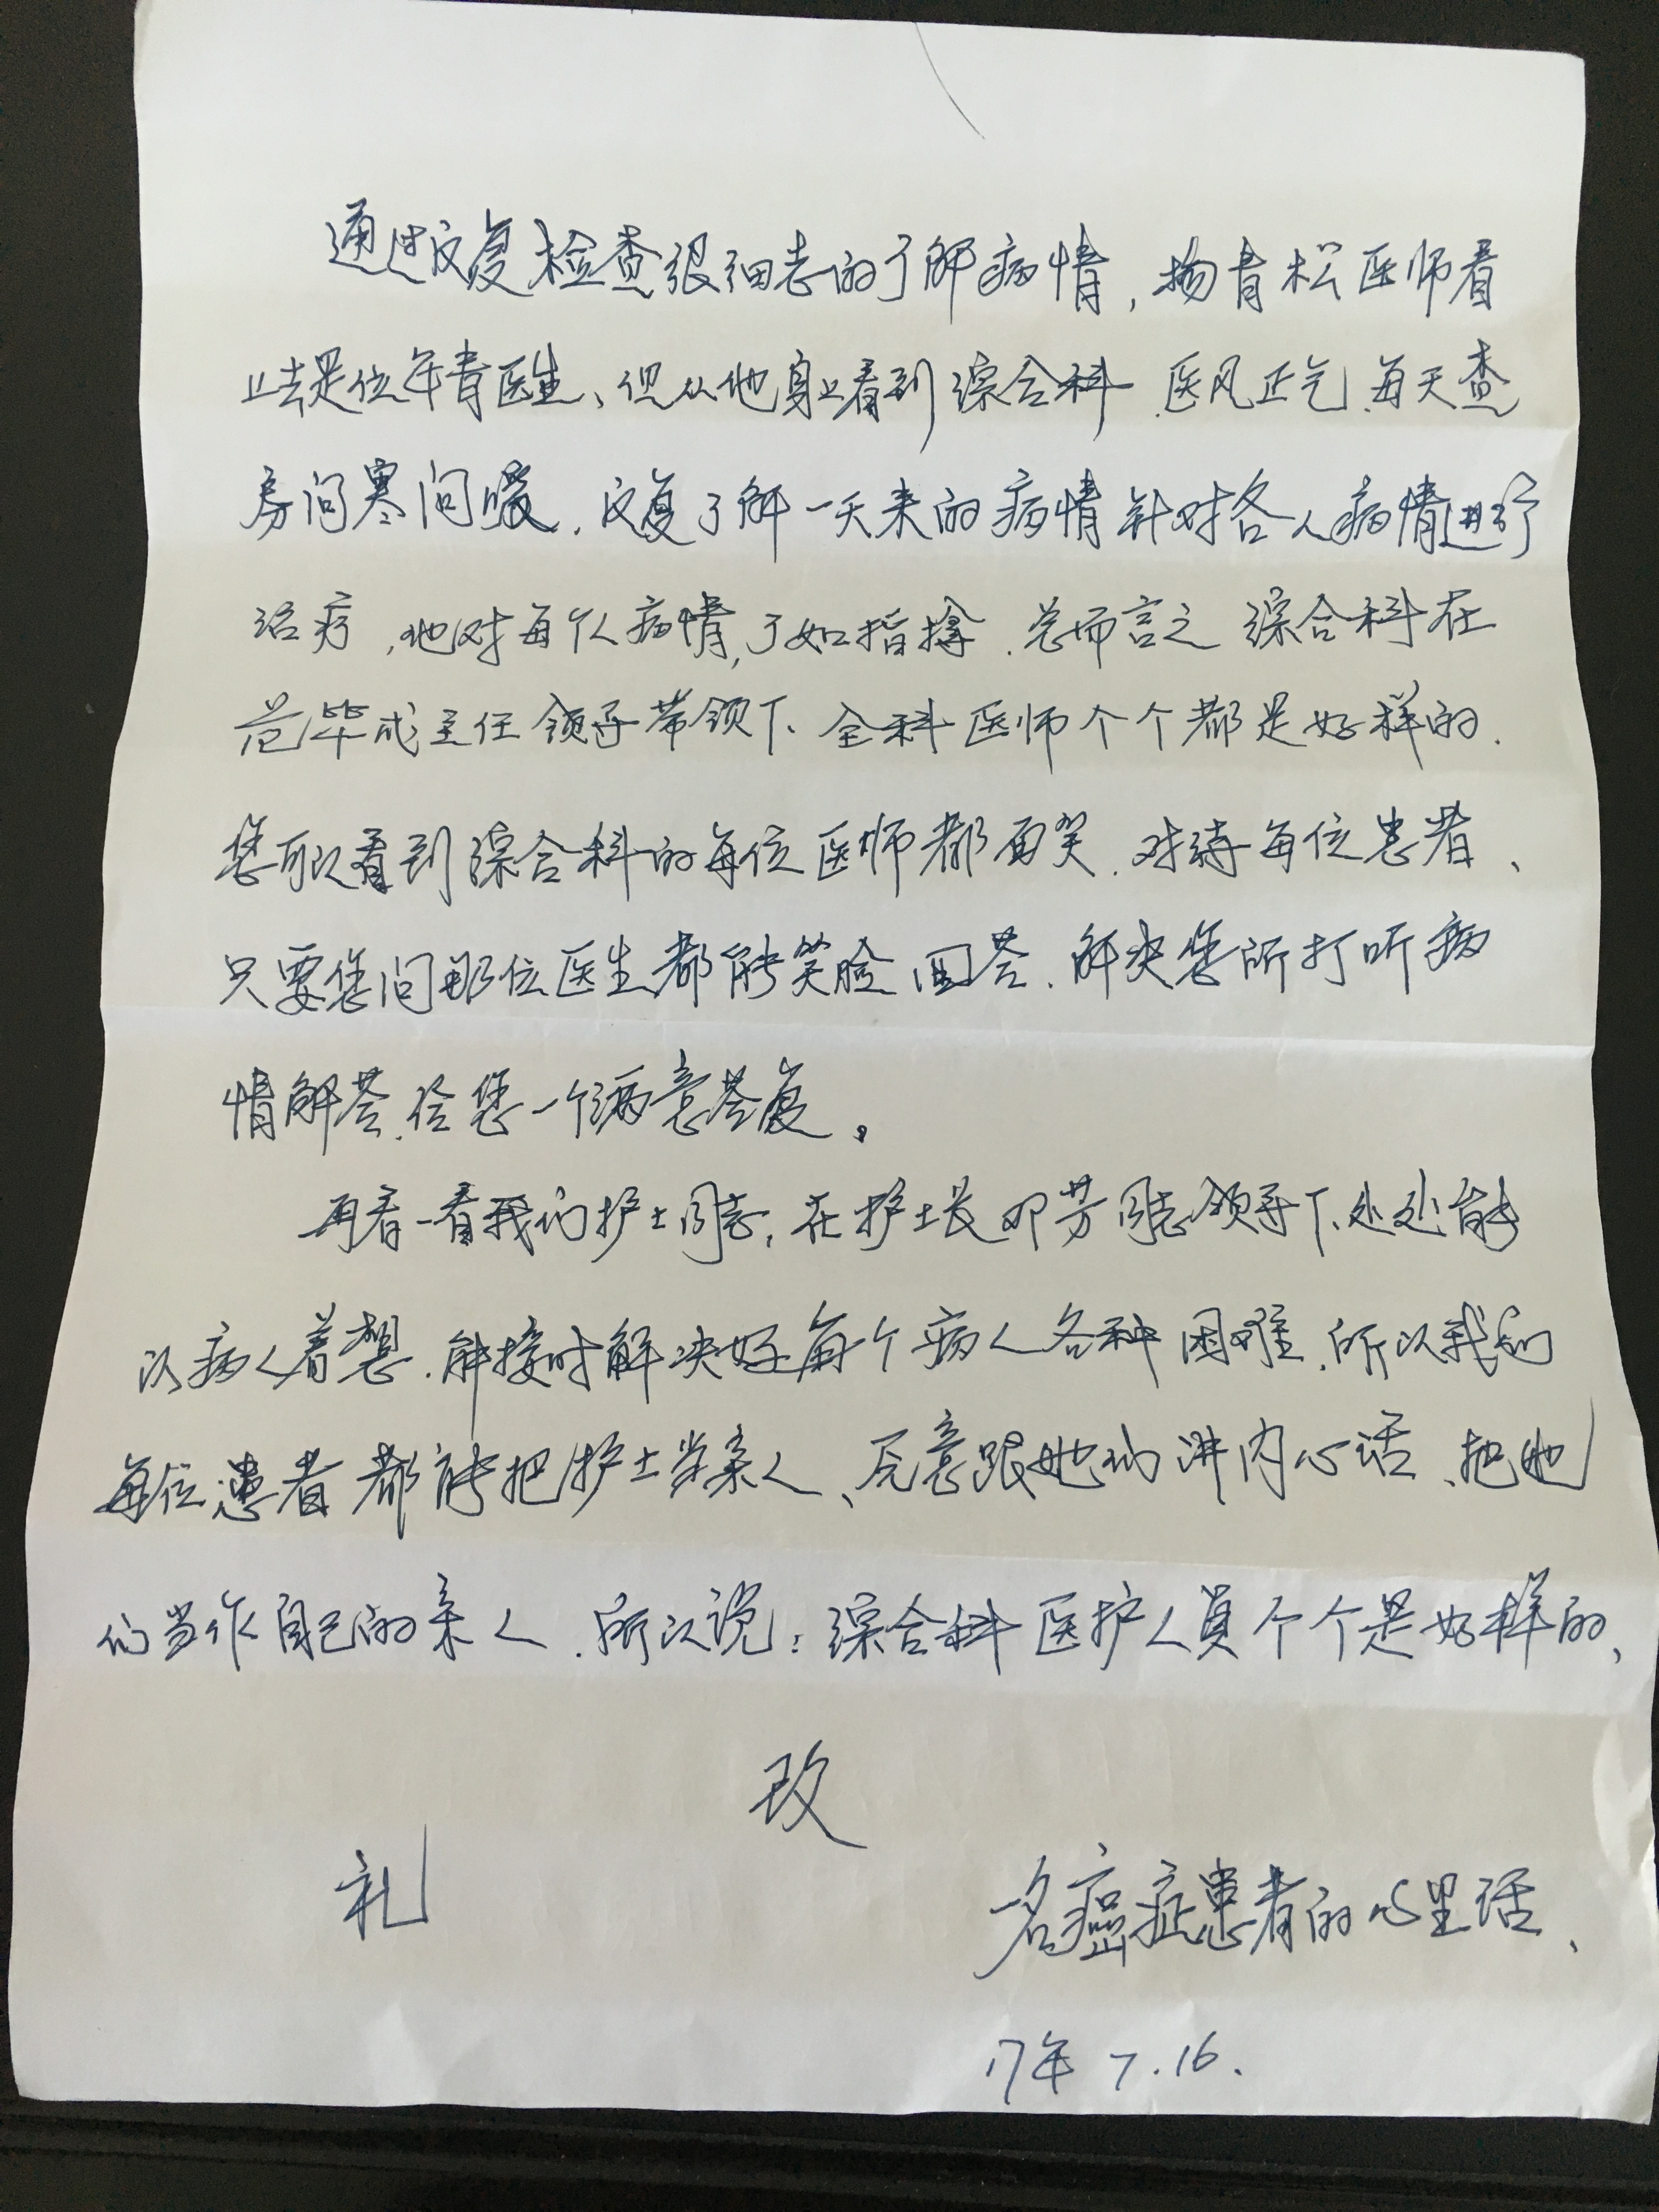 通过反复检查很细志的了解病情，杨青松医师看
上去是位年青医生、但从他身上看到综合科.医风正气.每天查
房问寒问暖.反复了解一天来的病情针对各人病情进行
治疗，他对每个人病情,了如指掌.总而言之 综合科在
范华成主任领导带领下、全科医师个个都是好样的.
您可以看到综合科的每位医师都面笑.对待每位患者、
只要您问那位医生都能笑脸回答.解决您所打听病
情解答.给您一个满意答复。
再看一看我们护士同志,在护士长邓芳同志领导下、处处能
以病人着想.能按时解决好每个病人各种困难.所以我们
每位患者都能把护士当亲人、愿意跟她们讲内心话、把她
们当作自己的亲人.所以说:综合科医护人员个个是好样的、
致
礼
一名癌症患者的心里话、
17年 7.16.